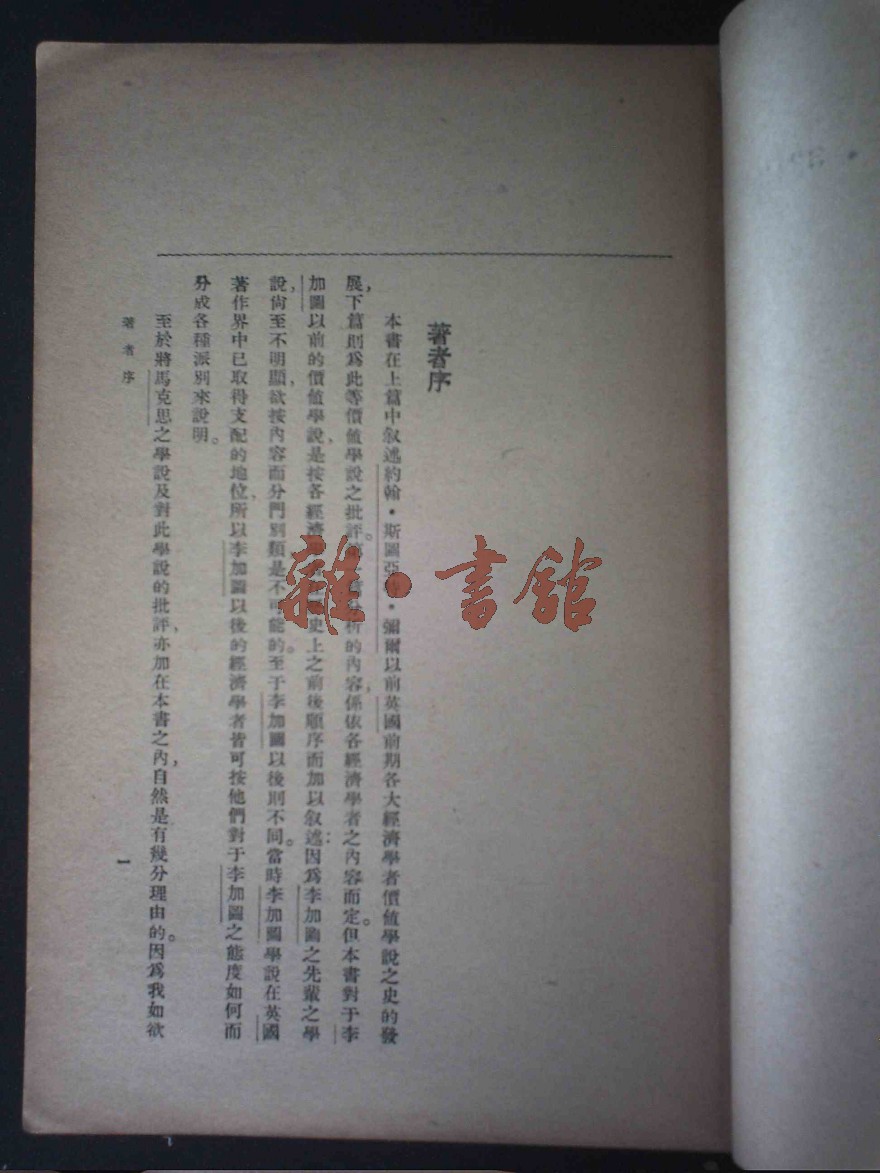 著者序
本書在上篇中叙述約翰・斯圖亞・彌爾以前英國前期各大經濟學者價值學說之史的發
展，下篇則爲此等價值學說之批評。析的內容，係依各經濟學者之內容而定。但本書對于李
加圖以前的價值學說，是按各經濟史上之前後順序而加以叙述：因爲李加圖之先輩之學
說，尙至不明顯，欲按內容而分門別類是不可能的。至于李加圖以後則不同。當時李加圖學說在英國
著作界中已取得支配的地位，所以李加圖以後的經濟學者皆可按他們對于李加圖之態度如何而
分成各種派別來說明。
至於將馬克思之學說及對此學說的批評，亦加在本書之內，自然是有幾分理由的。因爲我如欲
著者序
一
雜・書館